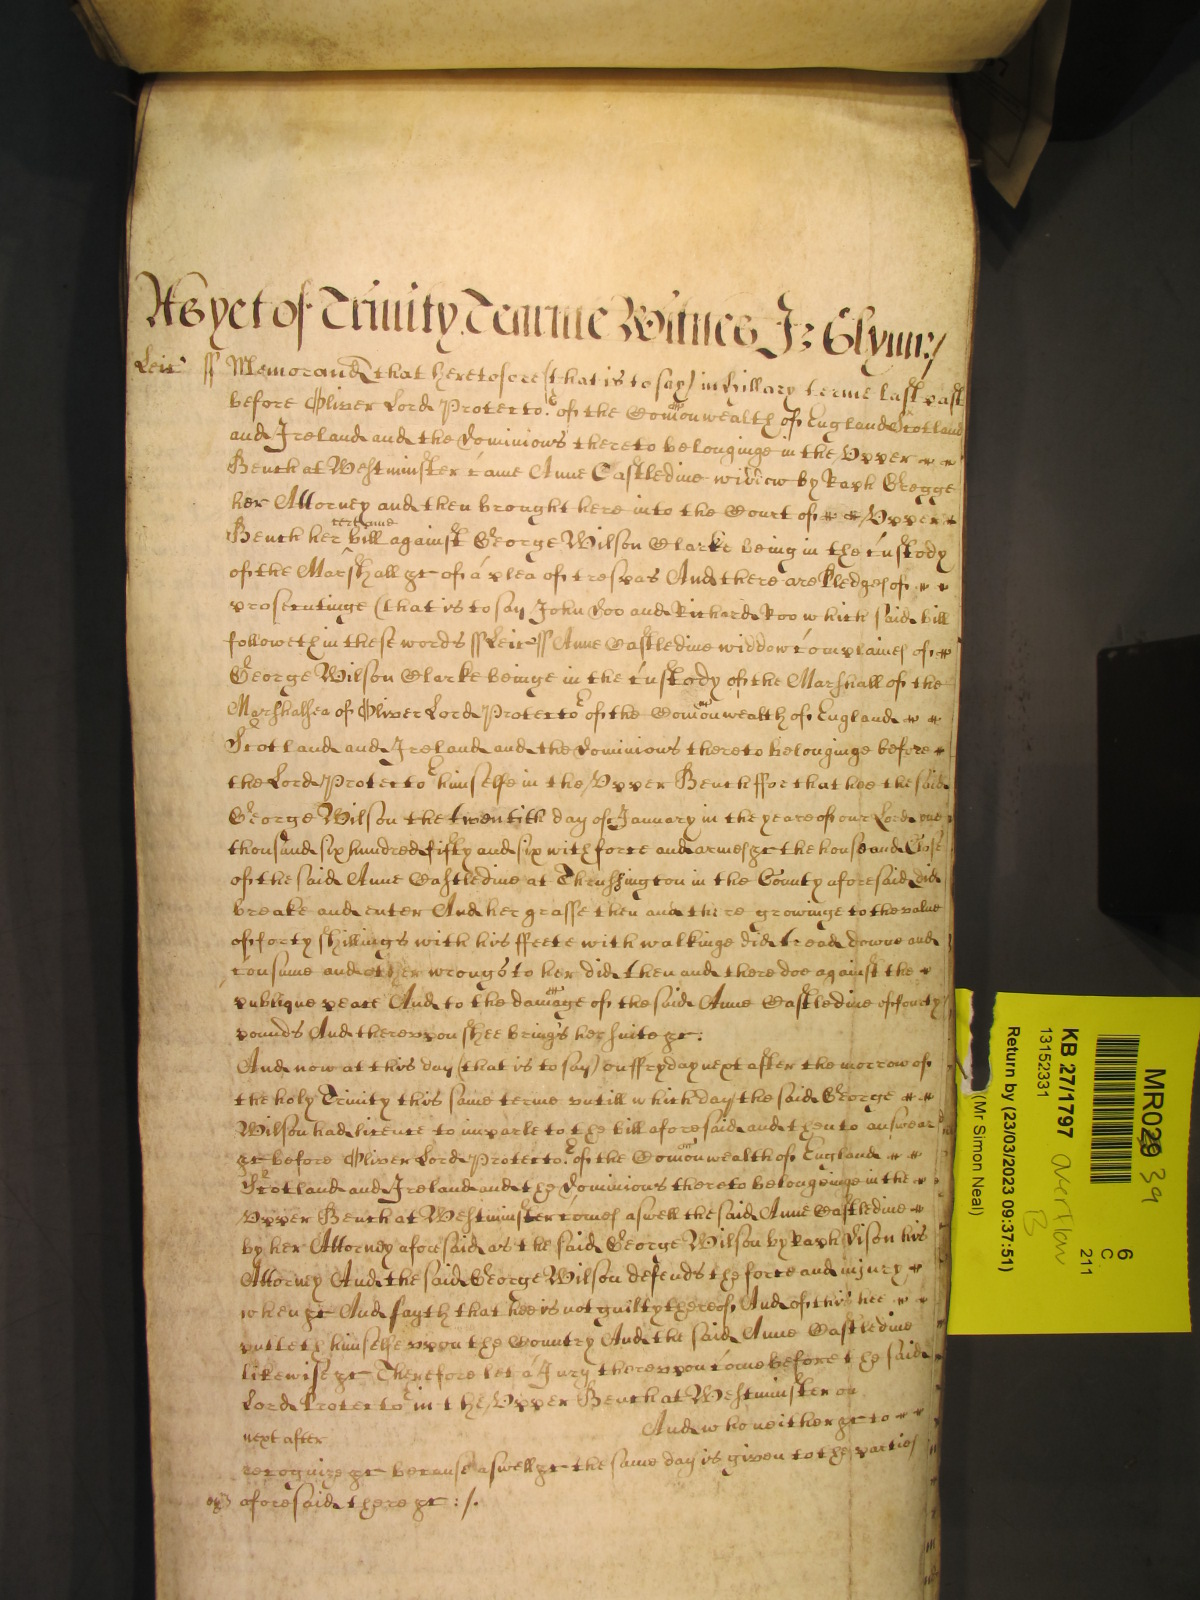 As yet of Trinity Tearme Witnes Jo: Glynn:/
Leic' ss Memorand that heretofore (that is to say) in Hillary terme last past
before Oliver Lord Protecto.r of the Comonwealth of England Scotland
and Ireland and the Dominions thereto belonginge in the Upper
Bench at Westminster came Anne Castledine widdow by Raph Gregge
her Attorney and then brought here into the Court of Upper
Bench her certaine bill against George Wilson Clarke being in the custody
of the Marshall &c of a plea of trespas And there are Pledges of
prosecutinge (that is to say John Doo and Richard Roo which said bill
followeth in these words ss Leic' ss Anne Castledine widdow complaines of
George Wilson Clarke beinge in the custody of the Marshall of the
Marshalsea of Oliver Lord Protector of the Comonwealth of England
Scotland and Ireland and the Dominions thereto belonginge before
the Lord Protector himselfe in the Upper Bench ffor that hee the said
George Wilson the twentith day of January in the yeare of our Lord one
thousand six hundred fifty and six with force and armes &c the house and Close
of the said Anne Castledine at Thrussington in the County aforesaid did
breake and enter And her grasse then and there growinge to the value
of forty shillings with his ffeete with walkinge did tread downe and
consume and other wrongs to her did then and there doe against the
publique peace And to the damage of the said Anne Castledine of fourty
pounds And thereupon shee brings her suite &c:
And now at this day (that is to say) on ffryday next after the morrow of
the holy Trinity this same terme untill which day the said George
Wilson had licence to imparle to the bill aforesaid and then to answear
&c before Oliver Lord Protecto.r of the Comonwealth of England
Scotland and Ireland and the Dominions thereto belongeinge in the
Upper Bench at Westminster comes aswell the said Anne Castledine
by her Attorney aforesaid as the said George Wilson by Raph Dison his
Attorney And the said George Wilson defends the force and injury
when &c And sayth that hee is not guilty thereof And of this hee
putteth himselfe upon the Country And the said Anne Castledine
likewise &c Therefore let a Jury thereupon come before the said
Lord Protector in the Upper Bench at Westminster on
next after And who neither &c to
recognize &c because aswell &c the same day is given to the parties
aforesaid there &c :/.
MR020 39
KB 27/1797 overflow B
13152331
Return by (23/03/2023 09:37:51)
(Mr Simon Neal)
6
C
211